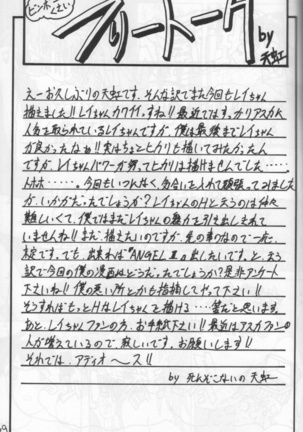 フリートーク
by
天虹
えーお久しぶりの天虹です。そんな訳でまた今回もレイちゃん
描きました!!レイちゃんカワイイっすね!!最近ではすっかりアスカに
人気を取られているレイちゃんですが、僕は最後までレイちゃん
が良かったなぁ!!実はちょこっとヒカリも描いてみたかったん
ですが、レイちゃんパワーが勝ってヒカリは描けませんでした……。
トホホ……。今回もいつになく、気合いを入れて頑張ってみました
が、いかがだったでしょうか?レイちゃんのHと言うのは中々
難しいくて、僕ではまだレイちゃんの魅力を引き出しきれて
いませんね!!まだ描きたいのですが、先の事なので一応
未定です。でも、出来れば"ANGELⅡ"も出したいです。と、言う
訳で今回の僕の漫画はどうだったでしょうか?是非アンケート
下さいね!!僕の悪い所とかも指摘してやって下さい!!
そうすればもっとHなレイちゃんを描ける…筈だと思います。
あと、レイちゃんファンの方、お手紙下さい!!最近はアスカファンの
人が増えているので、寂しいです。お願いします!!
それでは、アディオ〜ス!!
by 死んぞこないの天虹